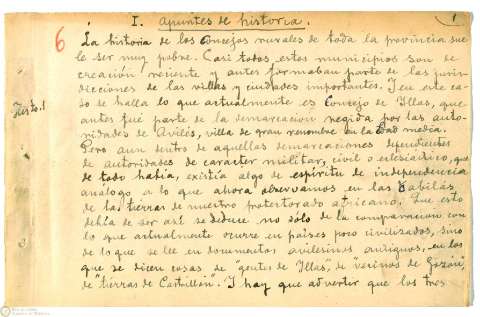 I. Apuntes de historia.
1
6
La historia de los Concejos rurales de toda la provincia sue
le ser muy pobre. Casi todos estos municipios son de
creación reciente y antes formaban parte de las juris-
dicciones de las villas y ciudades importantes. Y en este ca-
so se halla lo que actualmente es Concejo de Illas, que
antes fué parte de la demarcación regida por las auto-
ridades de Avilés, villa de gran renombre en la Edad media.
Pero aun dentro de aquellas demarcaciones dependientes
de autoridades de carácter militar, civil o eclesiástico, que
de todo había, existía algo de espíritu de independencia
análogo a lo que ahora observamos en las Cabilas
de las tierras de nuestro protectorado africano. Que esto
debía de ser así se deduce no sólo de la comparación con
lo que actualmente ocurre en países poco civilizados, sino
de lo que se lee en documentos avilesinos antiguos, en los
que se dicen cosas de "gente de Illas", de "vecinos de Gozón",
de "tierras de Castrillón". Y hay que advertir que los tres